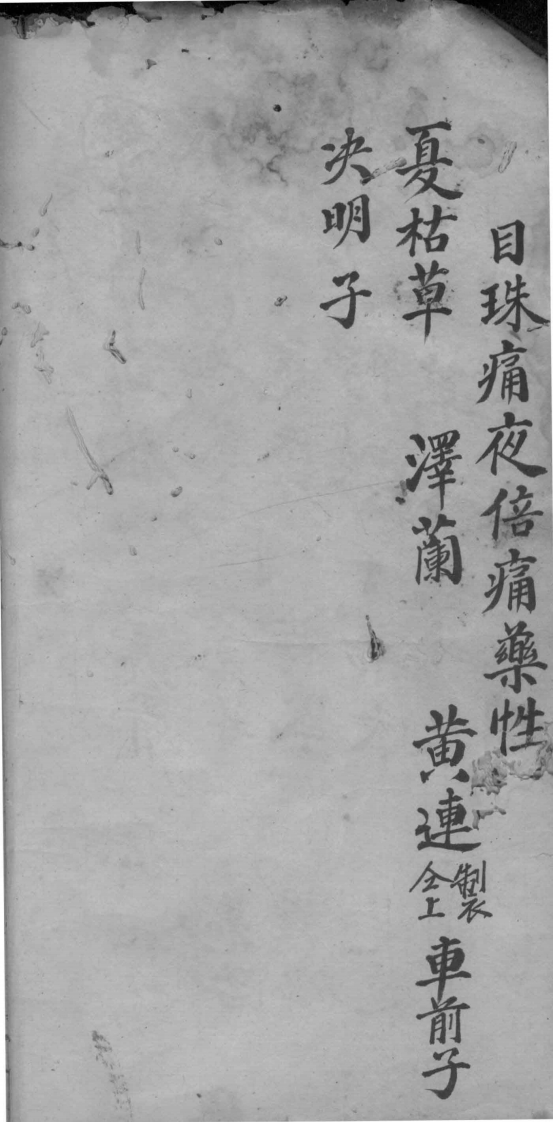 目珠痛夜倍痛藥性
夏枯草 澤蘭 黄連製仝上 車前子
决明子